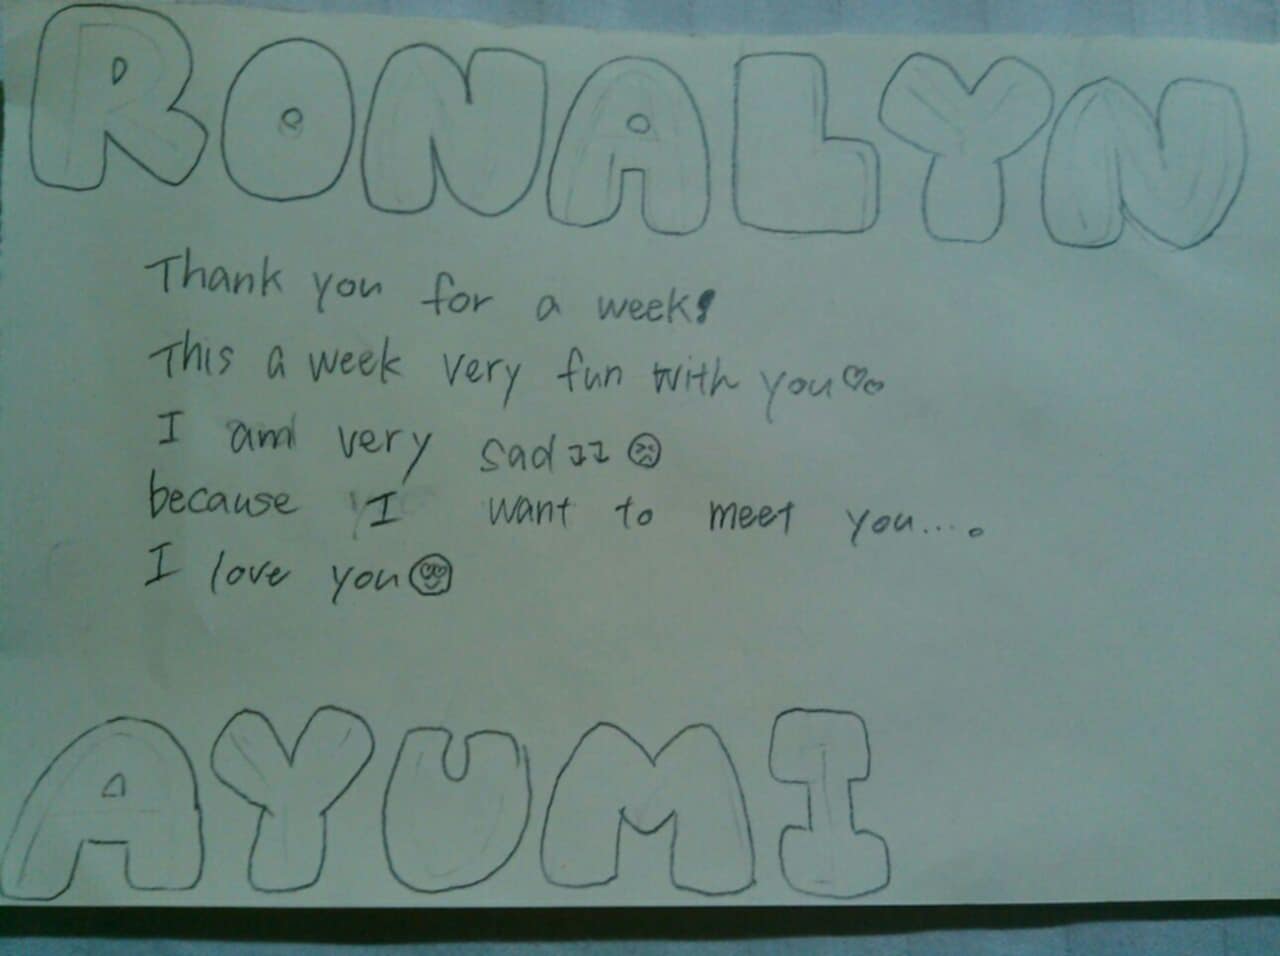 RONALYN
Thank you for a week!
This a week very fun with you♡♡
I am very sad ㅠㅠ ☹
because I want to meet you....。
I love you😍
AYUMI